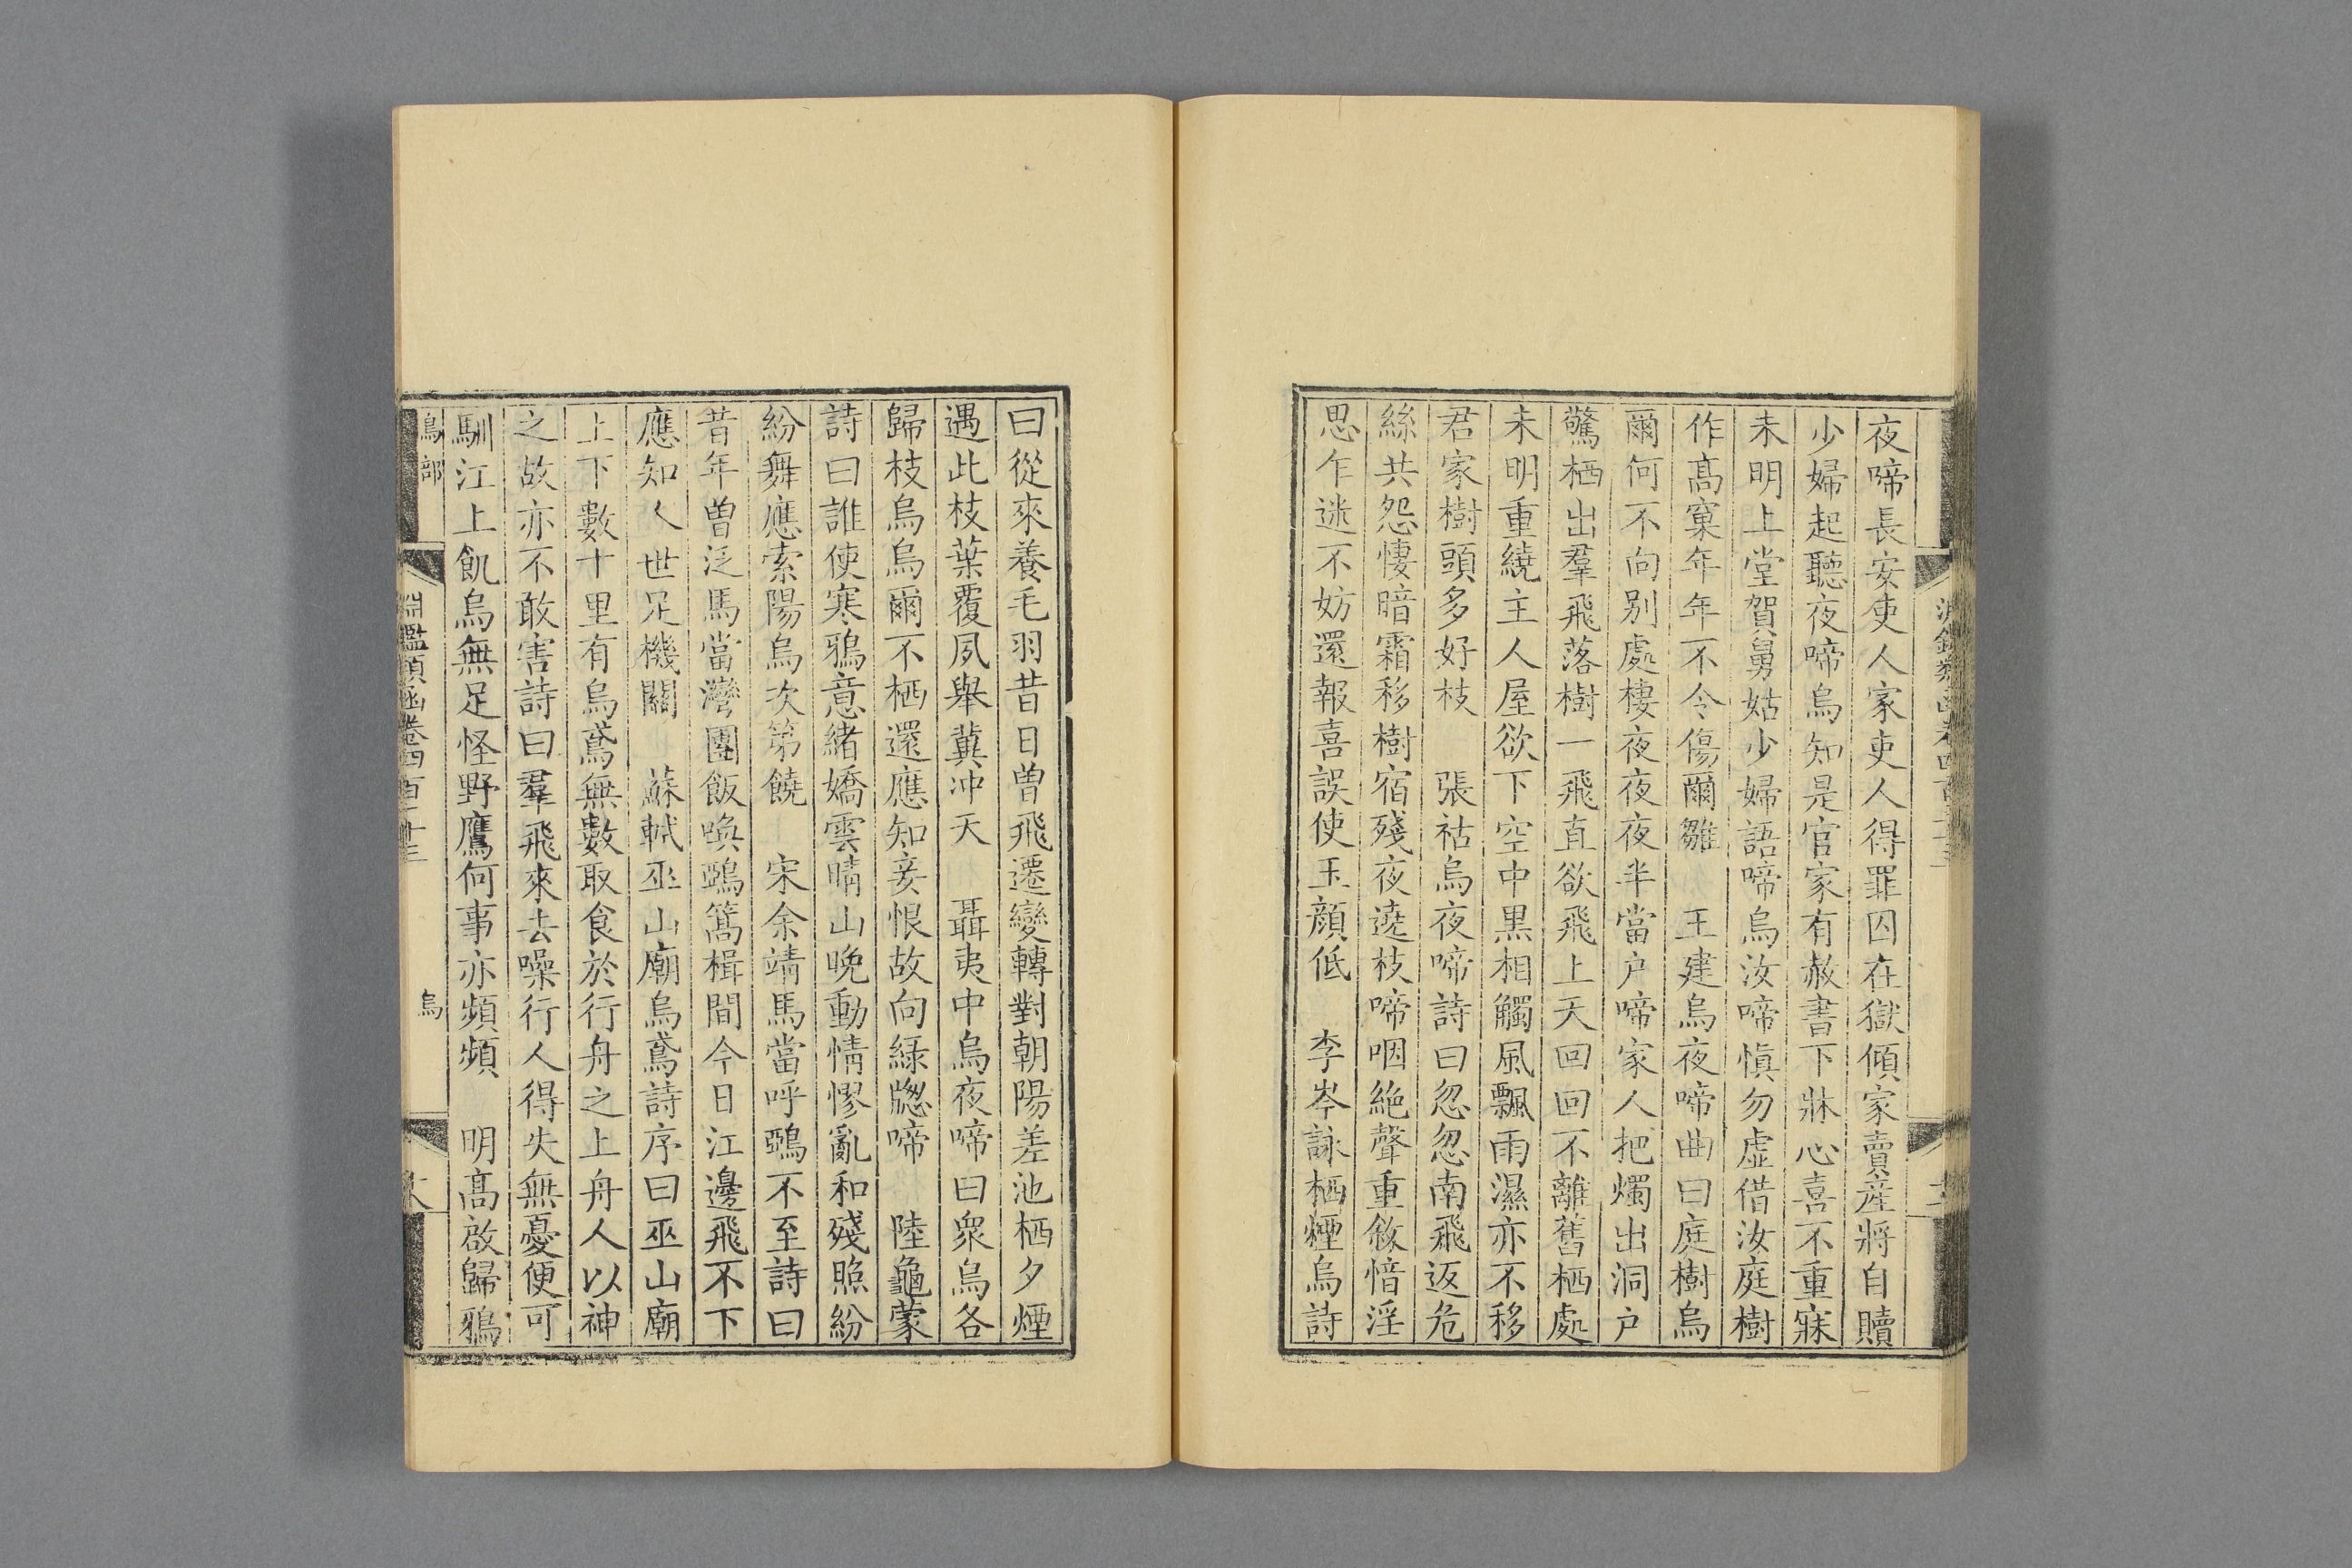 夜啼長安吏人家吏人得罪囚在獄傾家賣産將自贖
少婦起聽夜啼烏知是官家有赦書下牀心喜不重寐
未明上堂賀舅姑少婦語啼烏汝啼慎勿虛借汝庭樹
作髙窠年年不令傷爾雛 王建烏夜啼曲曰庭樹烏
爾何不向别處棲夜夜夜半當户啼家人把燭出洞户
驚栖出羣飛落樹一飛直欲飛上天回回不離舊栖處
未明重繞主人屋欲下空中黒相觸風飄雨濕亦不移
君家樹頭多好枝 張祜烏夜啼詩曰忽忽南飛返危
絲共怨悽暗霜移樹宿殘夜遶枝啼咽絶聲重敘愔淫
思乍迷不妨還報喜誤使玉顔低 李岑詠栖煙烏詩
曰從來養毛羽昔日曽飛遷變轉對朝陽差池栖夕煙
遇此枝葉覆夙舉冀沖天 聶夷中烏夜啼曰衆烏各
歸枝烏烏爾不栖還應知妾恨故向緑牎啼 陸龜蒙
詩曰誰使寒鴉意緒嬌雲晴山晚動情憀亂和殘照紛
紛舞應索陽烏次第饒 宋余靖馬當呼鵶不至詩曰
昔年曽泛馬當灣團飯喚鵶篙楫間今日江邊飛不下
應知人世足機關 蘇軾巫山廟烏鳶詩序曰巫山廟
上下數十里有烏鳶無數取食於行舟之上舟人以神
之故亦不敢害詩曰羣飛來去噪行人得失無憂便可
馴江上飢烏無足怪野鷹何事亦頻頻 明髙啟歸鴉
鳥部 淵鑑類函卷四百二十三 烏